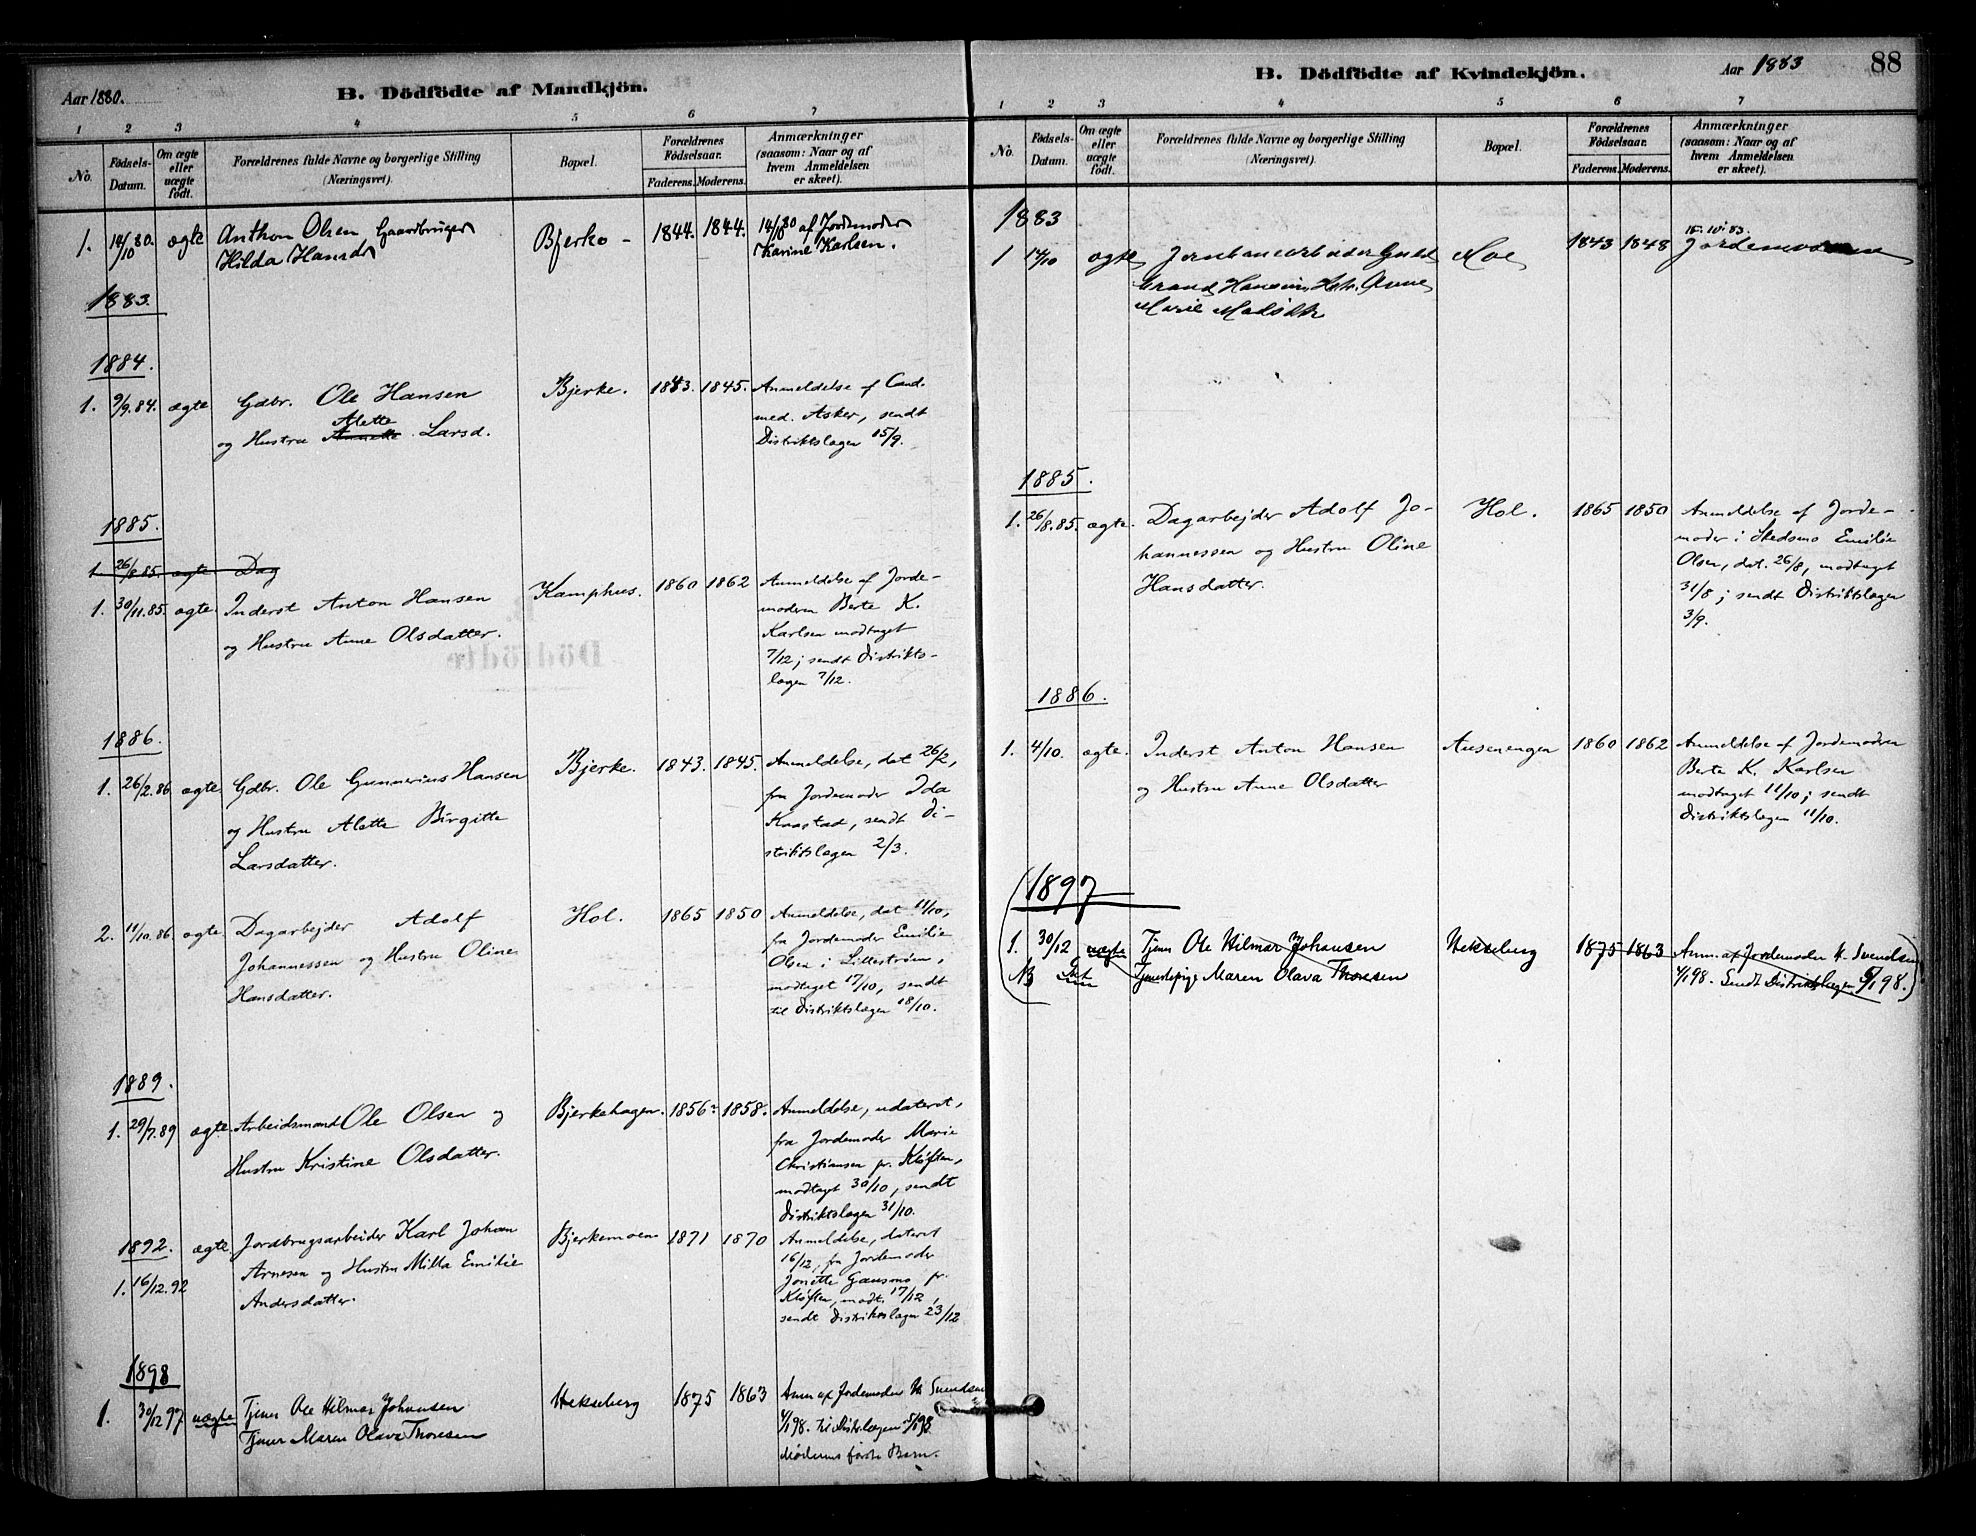 Aar 1880.
B. Dödfödte af Mandkjön.
1 2 3 4 5 6 7
No.
Födsels-Datum.
Om ægte eller uægte födt.
Forældrenes fulde Navne og borgerlige Stilling (Næringsvei).
Bopæl.
Forældrenes Födselsaar.
Faderens. Moderens.
Anmærkninger (saasom: Naar og af hvem Anmeldelsen er skeet).
1. 14/10 80. ægte Anthon Olsen Gaardbruger Bjerke - 1844. 1844. 14/10 80 af Jordemoder
Hilda Hansdr Karine Karlsen.
1883.
1884.
1. 9/9.84. ægte Gdbr. Ole Hansen Bjerke. 1843. 1845. Anmeldelse af Cand.
Alette med. Asker, sendt
og Hustru Annette Larsd. Distriktslægen 15/9.
1885.
1. 26/8.85. ægte Dag
1. 30/11.85. ægte Inderst Anton Hansen Kamphus. 1860 1862 Anmeldelse af Jorde-
og Hustru Anne Olsdatter. moderen Berte K.
Karlsen modtaget
7/12; sendt Distrikts-
lægen 7/12.
1886.
1. 26/2.86 ægte Gdbr. Ole Gunnerius Hansen Bjerke. 1843. 1845. Anmeldelse, dat 26/2,
fra Jordemoder Ida
og Hustru Alette Birgitte Knastad, sendt Di-
Larsdatter. striktslægen 2/3.
2. 11/10.86 ægte Dagarbejder Adolf Hol. 1865 1850 Anmeldelse, dat 11/10,
fra Jordemoder Emilie
Johannessen og Hustru Oline Olsen i Lillestrøm,
Hansdatter. modtaget 17/10, sendt
til Distriktslægen 18/10.
1889.
1. 29/7.89 ægte Arbeidsmand Ole Olsen og Bjerkehagen. 1856. 1858. Anmeldelse, udateret,
Hustru Kristine Olsdatter. fra Jordemoder Marie
Christiansen pr. Kløften,
modtaget 30/10, sendt
Distriktslægen 31/10.
1892. ægte. Jordbrugsarbeider Karl Johan Bjerkemoen 1871 1870 Anmeldelse, dateret
1. 16/12.92 Arnesen og Hustru Milla Emilie 16/12, fra Jordemoder
Andersdatter. Jonette Gausmo pr.
Kløften, modt. 17/12,
sendt Distriktslægen 23/12
1898
1. 30/12 97 uægte Tjener Ole Hilmar Johansen Hekseberg 1875 1863 Anm af Jordemoder K Svendsen
Tjener Maren Olava Thoresen 4/1 98. Til Distrlægen 5/1 98
Moderens første Barn.
88
B. Dödfödte af Kvindekjön.
Aar 1883
1 2 3 4 5 6 7
No.
Födsels-Datum.
Om ægte eller uægte födt.
Forældrenes fulde Navne og borgerlige Stilling (Næringsvei).
Bopæl.
Forældrenes Födselsaar.
Faderens. Moderens.
Anmærkninger (saasom: Naar og af hvem Anmeldelsen er skeet).
1883
1 14/10 ægte Jernbanearbeider Guld Moe 1843 1848 15.10.83. Jordemoderen
brand Hansen, Anne
Marie
1885.
1. 26/8.85. ægte. Dagarbejder Adolf Jo- Hol. 1865 1850 Anmeldelse af Jorde-
hannessen og Hustru Oline moder i Skedsmo Emilie
Hansdatter. Olsen, dat. 26/8, modtaget
31/8; sendt Distriktslægen
3/9.
1886.
1. 4/10. ægte. Inderst Anton Hansen Ausenengen 1860 1862 Anmeldelse af Jordemoderen
og Hustru Anne Olsdatter Berte K. Karlsen
modtaget 11/10; sendt
Distriktslægen 11/10.
(1897
1. 30/12 uægte Tjener Ole Hilmar Johansen Hekseberg 1875 1863 Anm. af Jordemoder K. Svendsen
NB Tjenestepige Maren Olava Thoresen 4/1 98. Sendt Distriktslægen 5/1 98.)